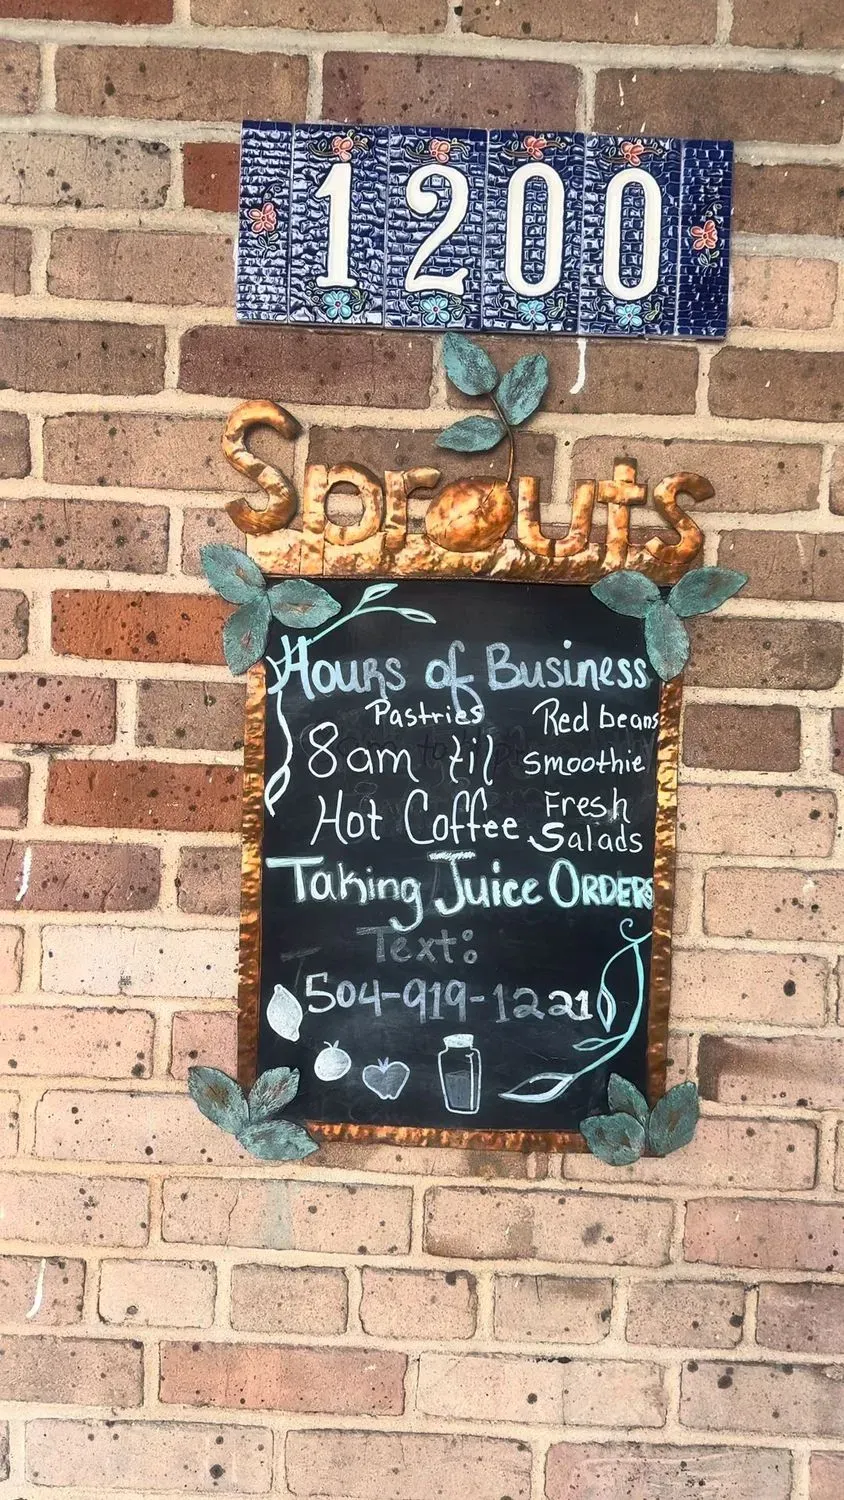 1200
Sprouts
Hours of Business
Pastries
8am til
Hot Coffee
Red beans
Smoothie
Fresh
Salads
Taking Juice ORDERS
Text:
504-919-1221